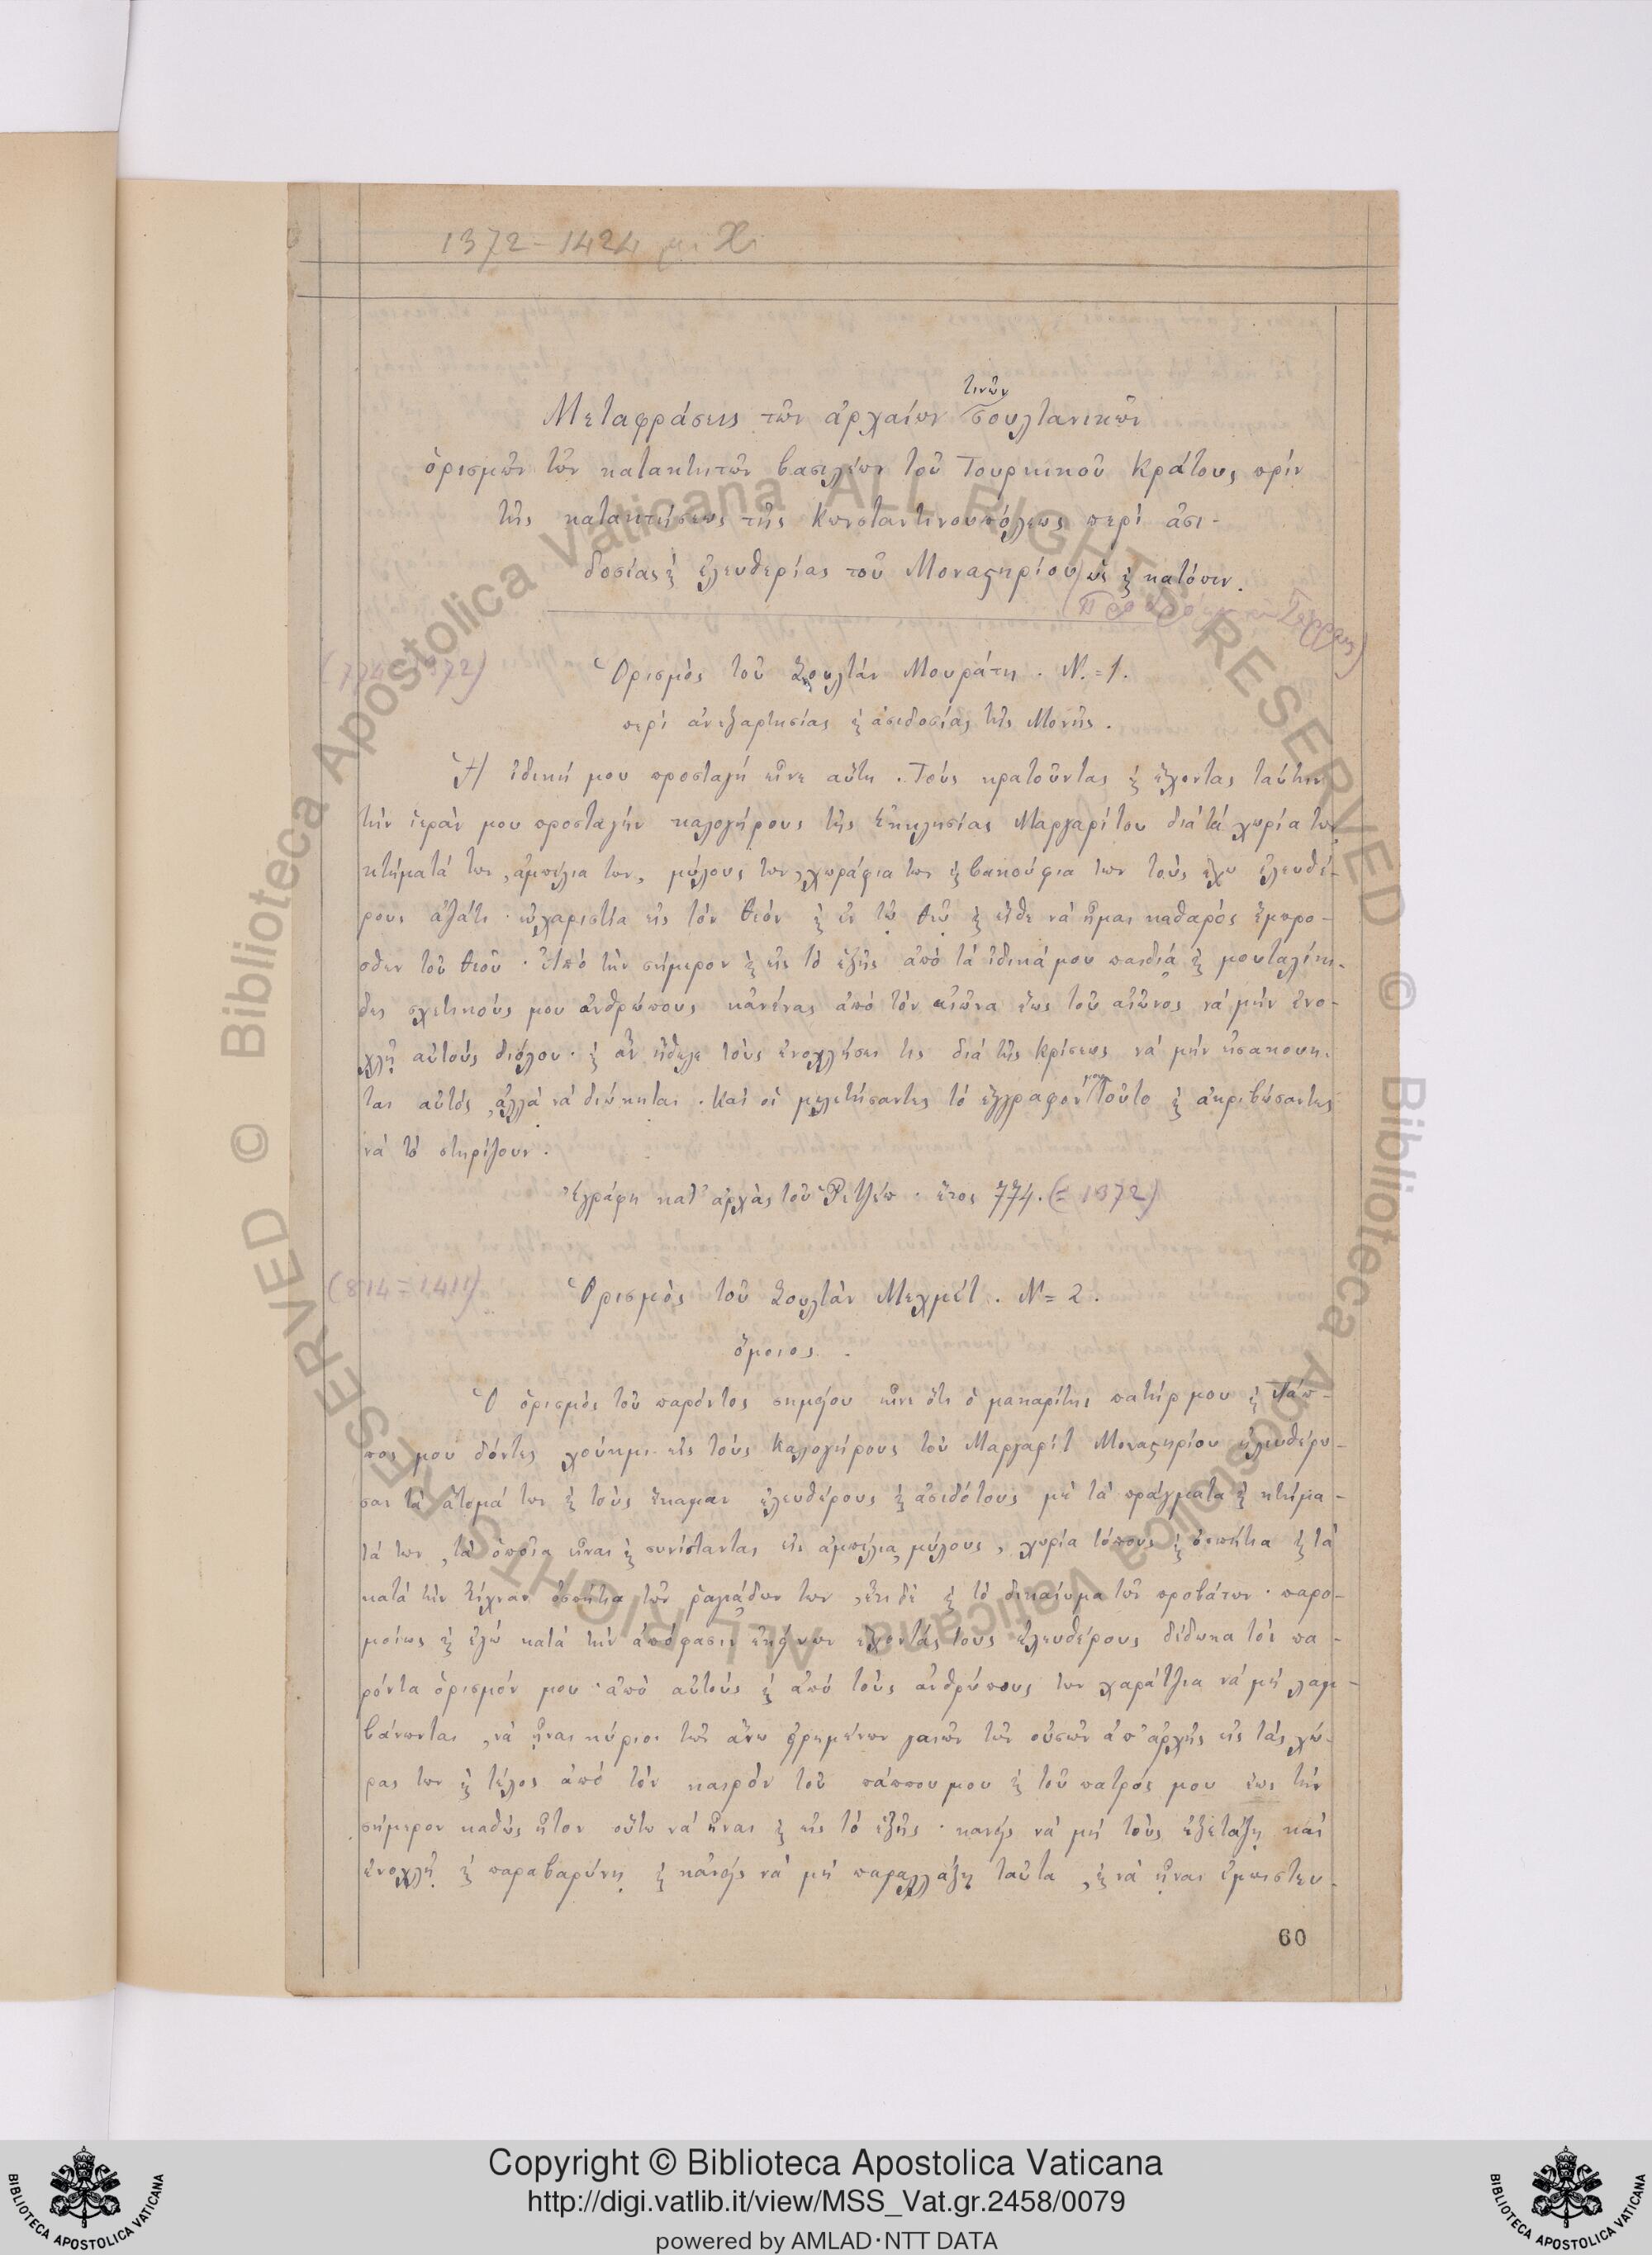 1372 - 1424 μ. Χ.
τινῶν
Μεταφράσεις τῶν ἀρχαίων σουλτανικῶν
ὁρισμῶν τῶν κατακτητῶν βασιλέων τοῦ Τουρκικοῦ Κράτους πρίν
τῆς κατακτήσεως τῆς Κωνσταντινουπόλεως περὶ ἀσι-
δοσίας ϗ ἐλευθερίας τοῦ Μοναςηρίου ὡς ϗ κατόπιν.
(Προδρόμου Σερρῶν)
(774=1372)
Ὁρισμὸς τοῦ Σουλτὰν Μουράτη . Ν.=1.
περὶ ἀνεξαρτησίας ϗ ἀσιδοσίας τῆς Μονῆς .
Ἡ ἰδική μου προσταγή εἶνε αὕτη . Τούς κρατοῦντας ϗ ἔχοντας ταύτην
τὴν ἱεράν μου προσταγὴν καλογήρους τῆς Ἐκκλησίας Μαργαρίτου διὰ τὰ χωρία των
κτήματά των, ἀμπέλια των, μύλους των, χωράφια των ϗ βακούφια των τούς ἔχω ἐλευθέ-
ρους ἀζάτι · εὐχαριστία εἰς τὸν θεὸν ϗ ἐν τῷ θεῷ ϗ εἴθε νὰ ἦμαι καθαρός ἔμπρο-
σθεν τοῦ θεοῦ · Ἀπό τὴν σήμερον ϗ εἰς τὸ ἑξῆς ἀπό τὰ ἰδικά μου παιδιά ϗ
σχετικούς μου ἀνθρώπους κᾀνένας ἀπό τὸν αἰῶνα ἕως τοῦ αἰῶνος νὰ μὴν ἐνο-
χλῇ αὐτούς διόλου · ϗ ἂν ἤθελε τούς ἐνοχλήσει τις διὰ τῆς κρίσεως νὰ μὴν εἰσακουη-
ται αὐτός, ἀλλὰ νὰ διώκηται . Καὶ οἱ μελετήσαντες τὸ ἔγγραφόν μου τοῦτο ϗ ἀκριβώσαντες
νὰ τὸ στηρίζουν .
Ἐγράφη κατ' ἀρχὰς τοῦ Ῥετζέπ · ἔτος 774. (= 1372)
(814=1411)
Ὁρισμὸς τοῦ Σουλτὰν Μεχμέτ . Ν= 2 .
ὅμοιος .
Ὁ ὁρισμὸς τοῦ παρόντος σημείου εἶνε ὅτι ὁ μακαρίτης πατήρ μου ϗ πάπ-
πος μου δόντες χούκμι εἰς τούς Καλογήρους τοῦ Μαργαρίτ Μοναςηρίου ἐλευθέρω-
σαν τὰ ἄτομά των ϗ τούς ἔκαμαν ἐλευθέρους ϗ ἀσιδότους μὲ τὰ πράγματα ϗ κτήμα-
τά των, τὰ ὁποῖα εἶναι ϗ συνίστανται εἰς ἀμπέλια, μύλους, χωρία τόπους ϗ ὁσπήτια ϗ τὰ
κατὰ τὴν Ζίχναν ὁσπήτια τῶν ῥαγιάδων των, ἔτι δὲ ϗ τὸ δικαίωμα τῶν προβάτων · παρο-
μοίως ϗ ἐγώ κατὰ τὴν ἀπόφασιν ἐκείνων ἔχοντάς τους ἐλευθέρους δέδωκα τὸν πα-
ρόντα ὁρισμόν μου · ἀπό αὐτούς ϗ ἀπό τούς ἀνθρώπους των χαράτζια νὰ μὴ λαμ-
βάνωνται, νὰ ᾖναι κύριοι τῶν ἄνω εἰρημένων γαιῶν τῶν οὐσῶν ἀπ' ἀρχῆς εἰς τὰς χώ-
ρας των ϗ τέλος ἀπό τὸν καιρὸν τοῦ πάππου μου ϗ τοῦ πατρός μου ἕως τὴν
σήμερον καθώς ἦτον οὕτω νὰ ᾖναι ϗ εἰς τὸ ἑξῆς · κανείς νὰ μὴ τούς ἐξετάζῃ καὶ
ἐνοχλῇ ϗ παραβαρύνῃ ϗ κᾀνείς νὰ μὴ παραλλάξῃ ταῦτα, ϗ νὰ ᾖναι ἐμπιστευ-
60
Copyright © Biblioteca Apostolica Vaticana
http://digi.vatlib.it/view/MSS_Vat.gr.2458/0079
powered by AMLAD·NTT DATA